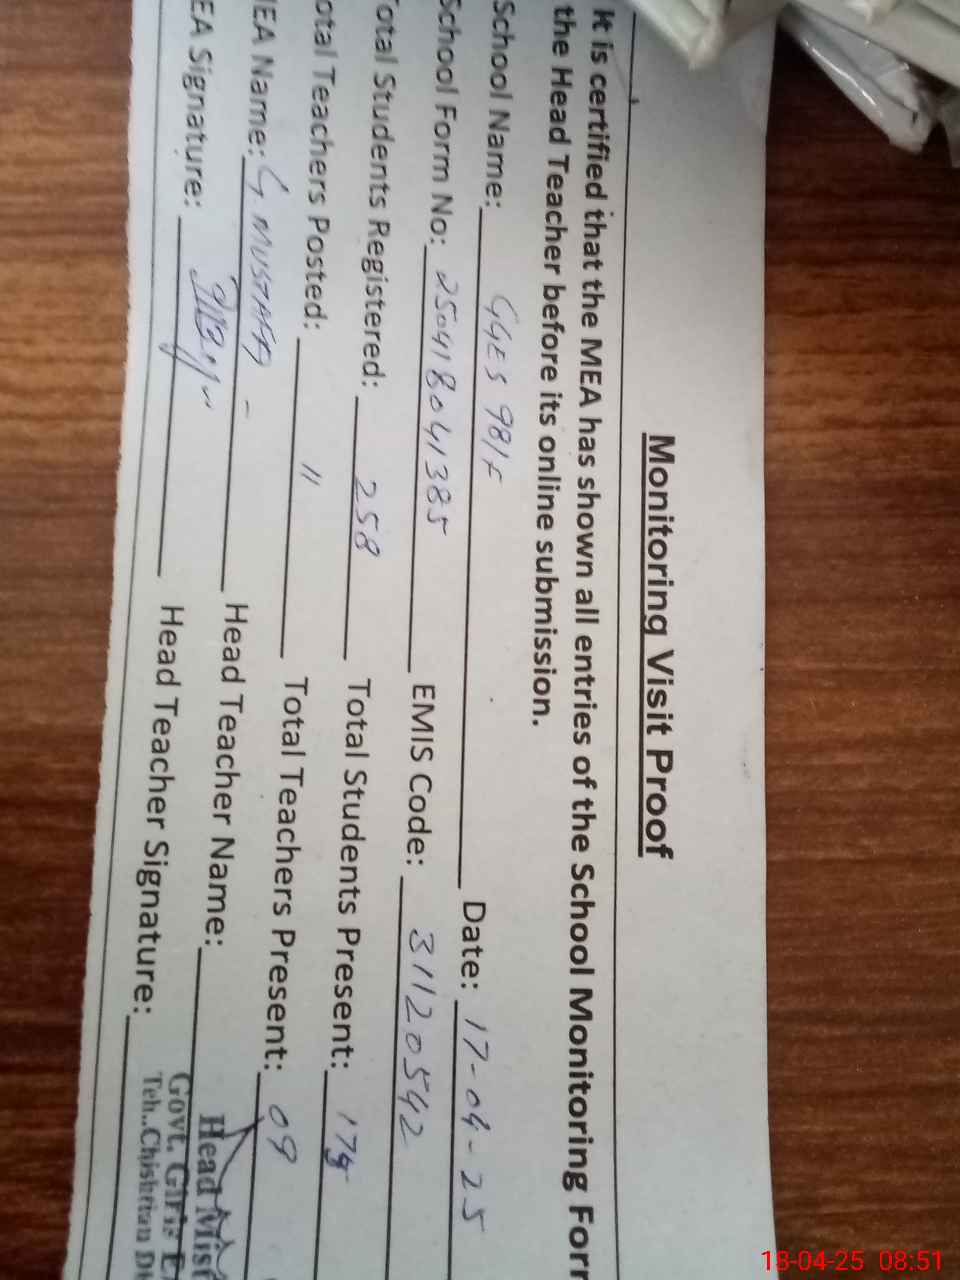 Monitoring Visit Proof
It is certified that the MEA has shown all entries of the School Monitoring Form
the Head Teacher before its online submission.
School Name: GGES 98/F Date: 17-04-25
School Form No: 250418041385 EMIS Code: 31120542
Total Students Registered: 258 Total Students Present:
otal Teachers Posted: 11 Total Teachers Present: 09
MEA Name: G MUSTAFA Head Teacher Name:
EA Signature: Head Teacher Signature:
Head Mist
Govt. Girls E
Teh..Chishtian Di
18-04-25 08:51